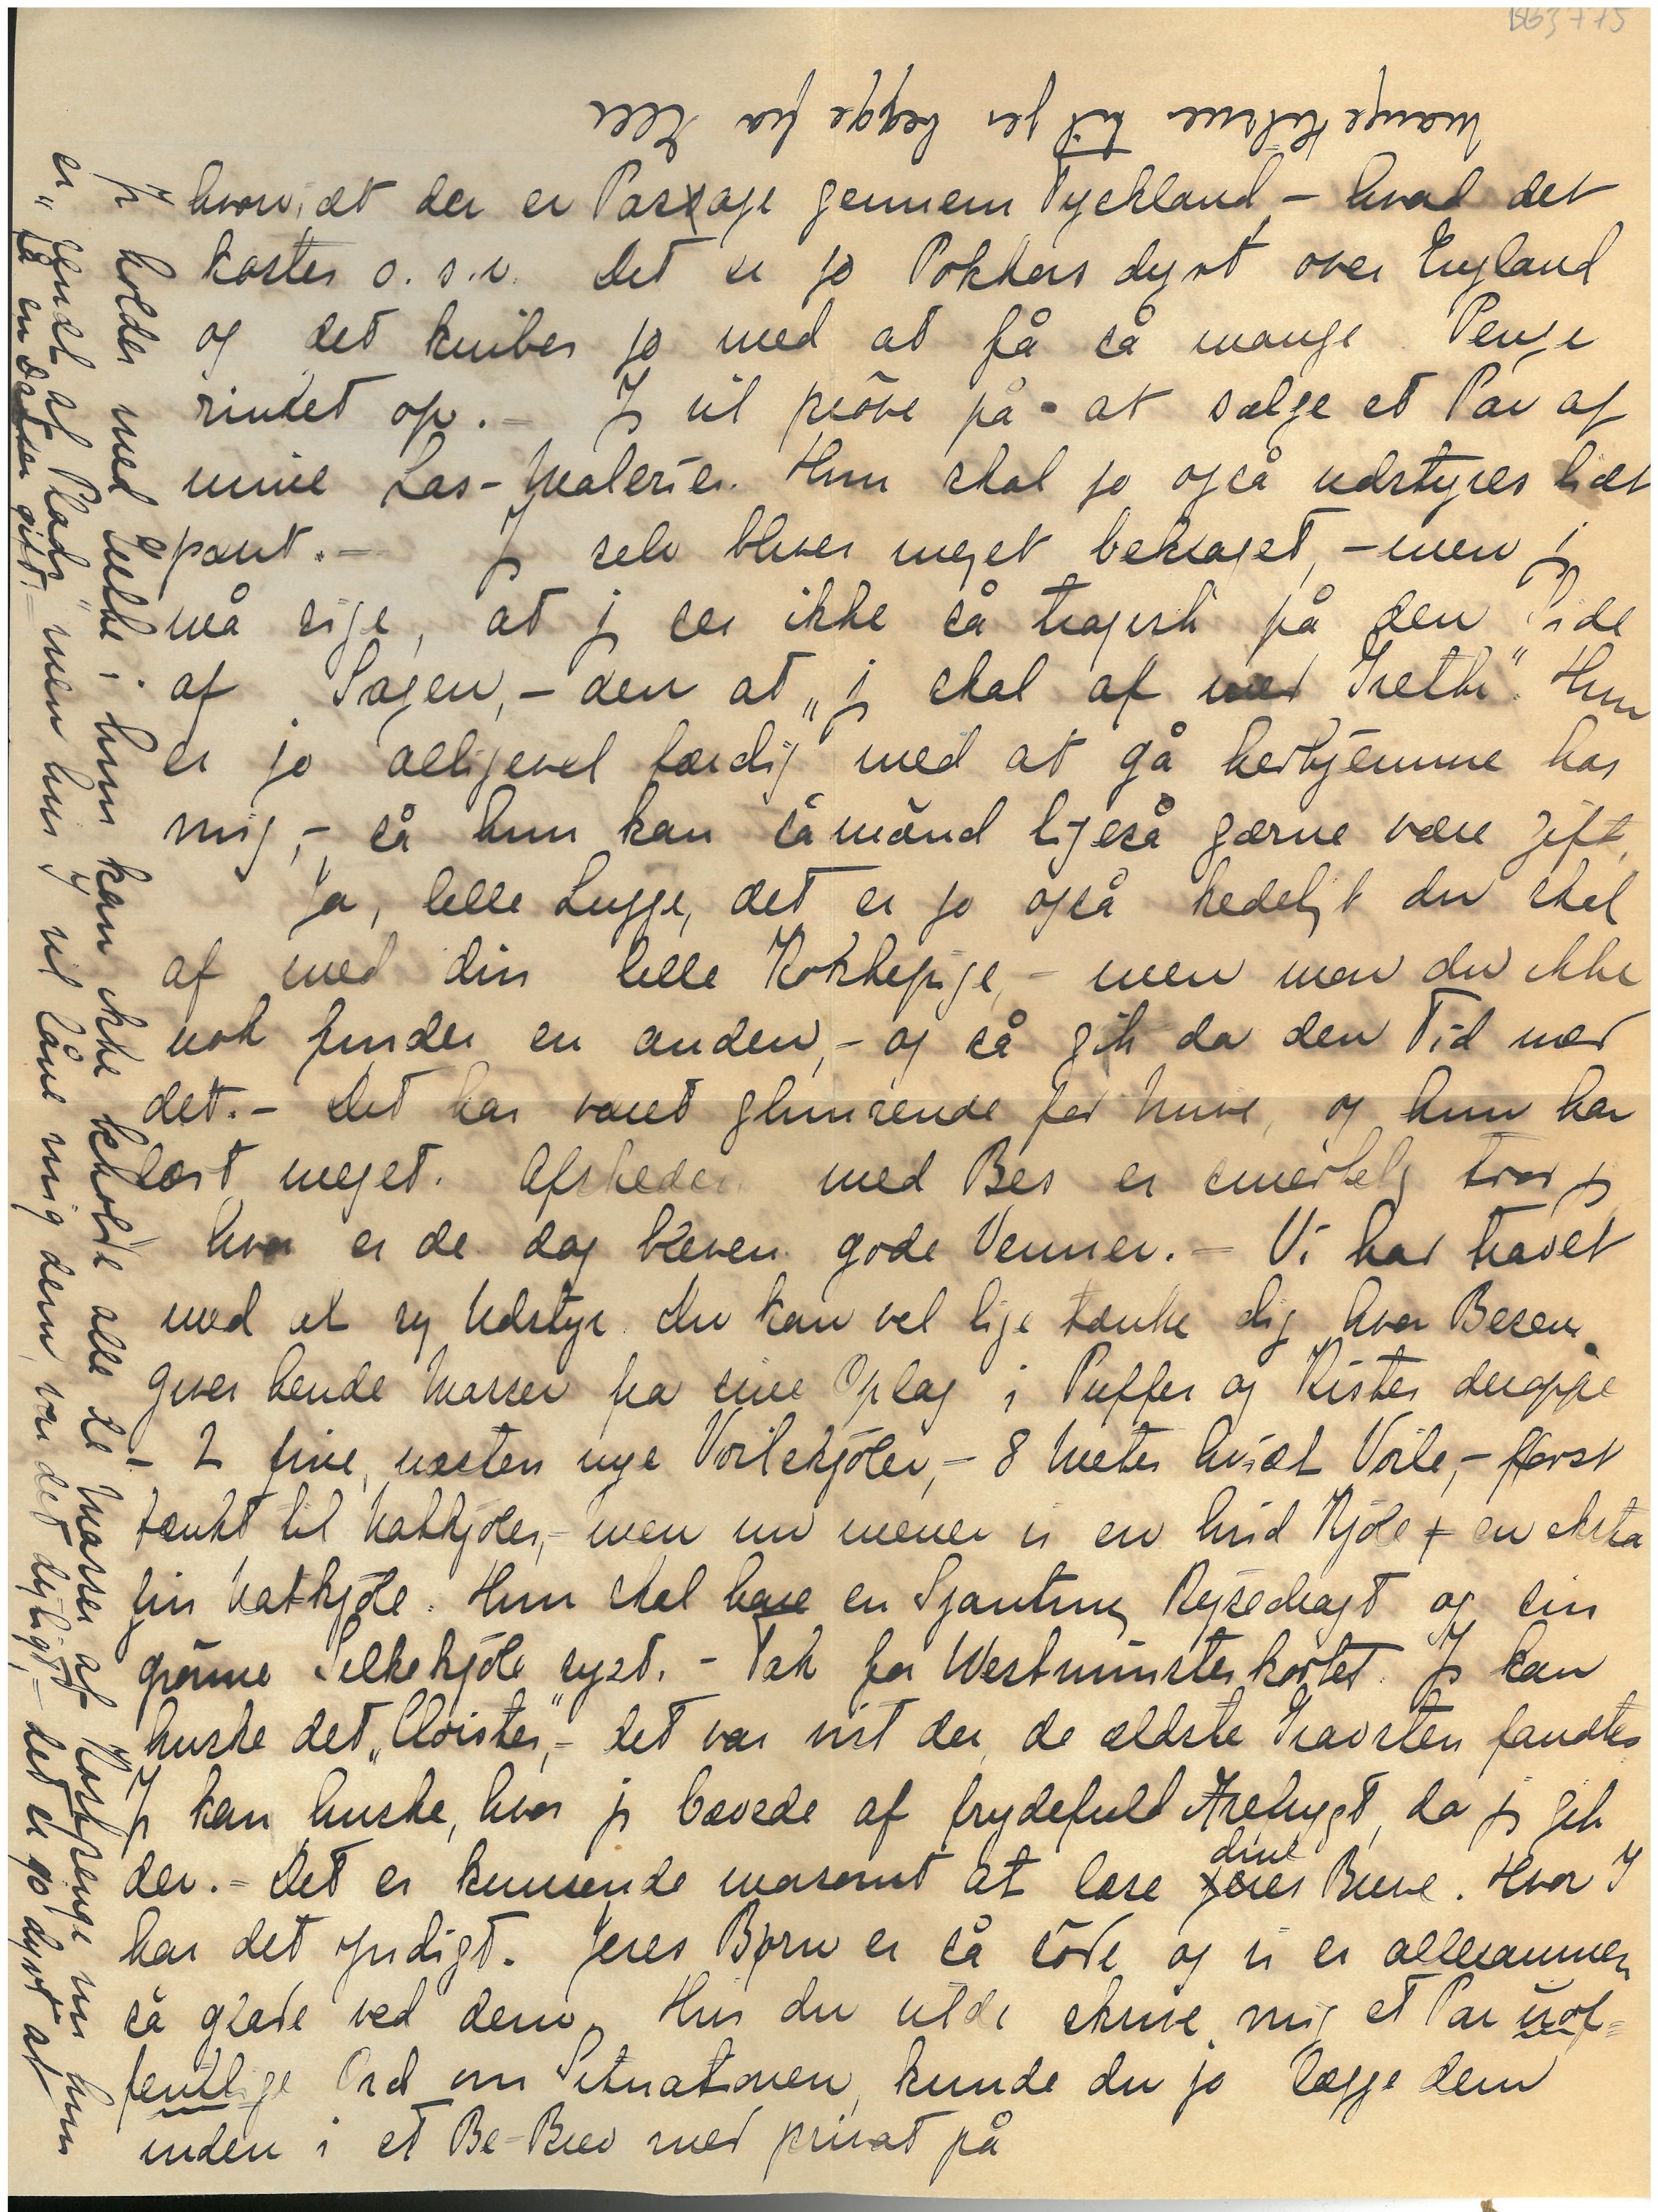 BB3775
Mange Hilsner til jer begge fra Elle
hvorvidt der er Passage gennem Tyskland, – hvad det
koster o. s. v. Det er jo Pokkers dyrt over England
og det kniber jo med at få så mange Penge
rinket op. – Jg vil prøve på at sælge et Par af
mine Las-Malerier. Hun skal jo også udstyres lidt
pænt. – Jg selv bliver meget beklaget, – men jg
må sige, at jg ser ikke så tragisk på den Side
af Sagen, – den at „jg skal af med Grethe". Hun
er jo alligevel færdig med at gå herhjemme hos
mig, – så hun kan såmænd ligeså gærne være gift.
Ja, lille Lugge, det er jo også kedeligt du skal
af med din lille Kokkepige, – men mon du ikke
nok finder en anden, – og så gik da den Tid med
det. – Det har været glimrende for hende, og hun har
lært meget. Afskeden med Bes er smertelig tror jg
hvor er de dog bleven gode Venner. – Vi har travlt
med at sy Udstyr. Du kan vel lige tænke dig, hvor Besen
giver hende Masser fra sine Oplag i Puffer og Kister deroppe
– 2 fine, næsten nye Voilekjoler, – 8 Meter hvidt Voile, – først
tænkt til Natkjoler, – men nu mener vi en hvid Kjole + en ekstra
fin Natkjole. Hun skal have en Sjantung Rejsedragt og sin
grønne Silkekjole syet. – Tak for Westminsterkortet. Jg kan
huske det „Cloister", – det var vist der, de ældste Gravsten fandtes
Jg kan huske, hvor jg bævede af frydefuld Ærefrygt, da jg gik
der. – Det er kunsende morsomt at læse jeres dine Breve. Hvor I
har det yndigt. Jeres Børn er så søde og vi er allesammen
så glade ved dem. Hvis du vilde skrive mig et Par uof=
fentlige Ord om Situationen, kunde du jo lægge dem
inden i et Be-Brev med privat på
Jg holder med Lelle i hun kan ikke beholde alle de Masser af Kostpenge når hun
er „tyndt af Plads" men hvis jg vil låne mig dem, var det dejligt, – det er jo dyrt at
få en Datter gift. –